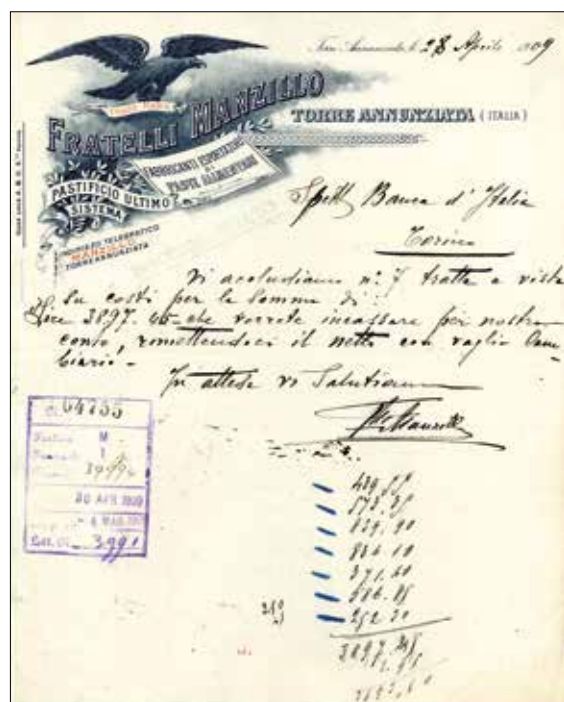 Torre Annunziata, li 28 Aprile 1909
FRATELLI MANZILLO
TORRE ANNUNZIATA (ITALIA)
FABBRICANTI ESPORTATORI
DI
PASTE ALIMENTARI
PASTIFICIO ULTIMO
SISTEMA
INDIRIZZO TELEGRAFICO
MANZILLO
TORRE ANNUNZIATA
Spett Banca d'Italia
Torino
Vi accludiamo n: 7 tratte a vista
su costì per la Somma di
Lire 3897.45 che vorrete incassare per nostro
conto, rimettendoci il netto con vaglia Cam
biario.-
In attesa vi Salutiamo
Manzillo
04735
M
1
30 APR 1909
3991
439.
573.
839.90
836.10
371.60
586.85
252.30
3897.45